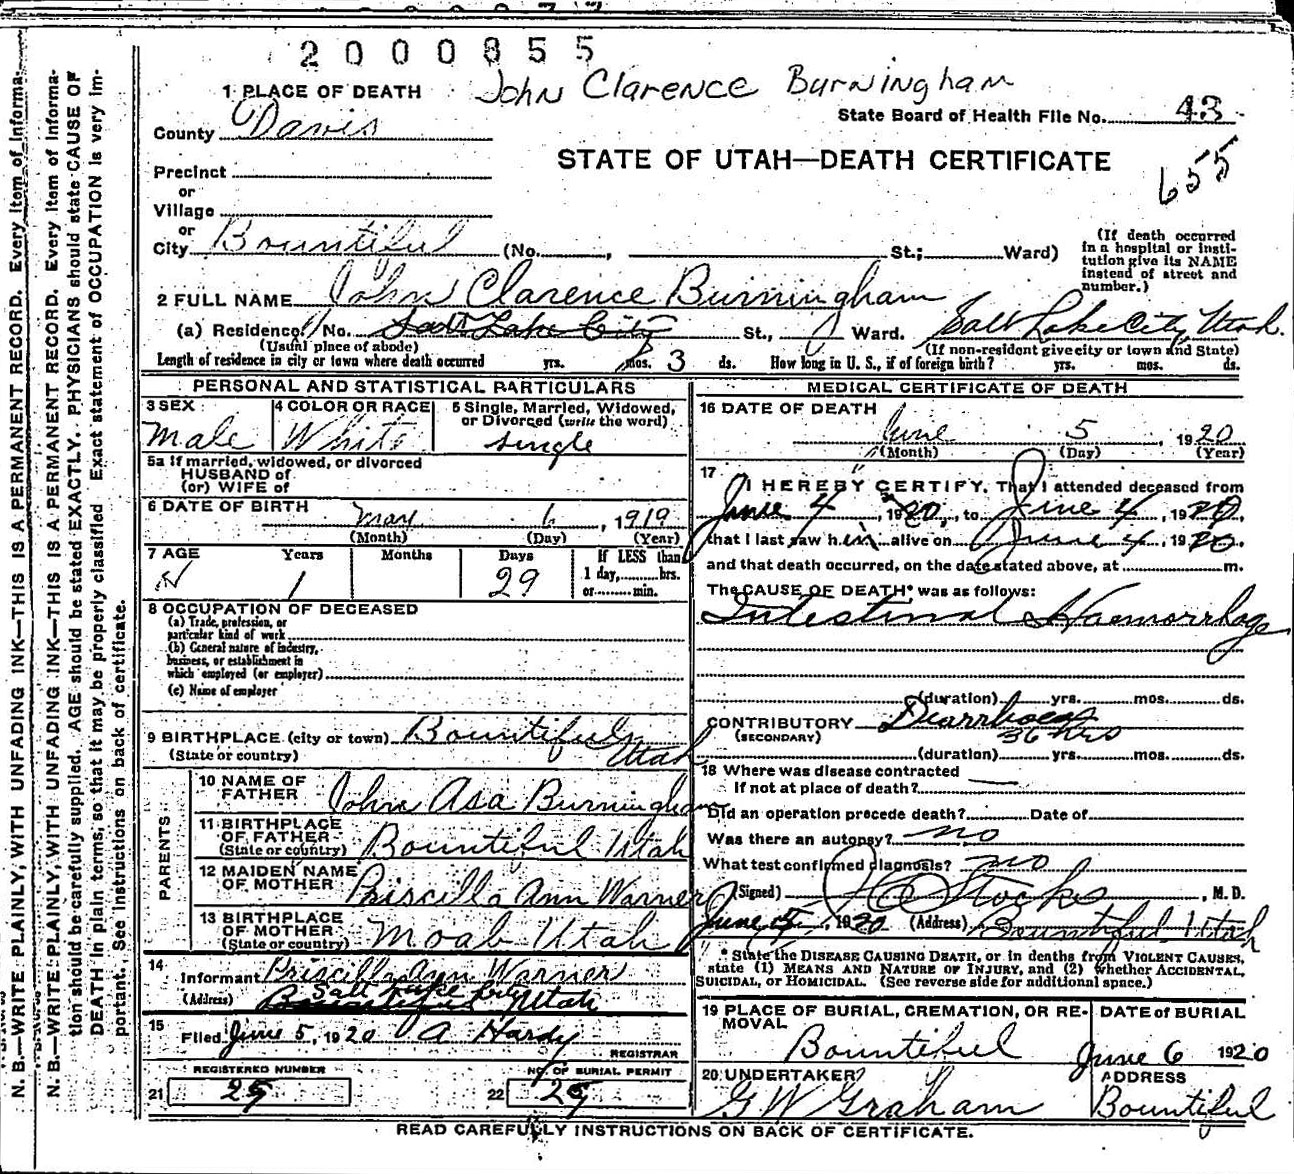 2000855
John Clarence Burningham
1 PLACE OF DEATH
State Board of Health File No. 43
County Davis
655
STATE OF UTAH—DEATH CERTIFICATE
Precinct
or
Village
or
City Bountiful (No. , St.; Ward)
(If death occurred
in a hospital or insti-
tution give its NAME
instead of street and
number.)
2 FULL NAME John Clarence Burningham
(a) Residence. No. Salt Lake City St., Ward. Salt Lake City, Utah.
(Usual place of abode) (If non-resident give city or town and State)
Length of residence in city or town where death occurred yrs. mos. 3 ds. How long in U. S., if of foreign birth? yrs. mos. ds.
PERSONAL AND STATISTICAL PARTICULARS
3 SEX
Male
4 COLOR OR RACE
White
5 Single, Married, Widowed,
or Divorced (write the word)
single
5a If married, widowed, or divorced
HUSBAND of
(or) WIFE of
6 DATE OF BIRTH
May 6, 1919
(Month) (Day) (Year)
7 AGE Years Months Days If LESS than
1 29 1 day, hrs.
or min.
8 OCCUPATION OF DECEASED
(a) Trade, profession, or
particular kind of work
(b) General nature of industry,
business, or establishment in
which employed (or employer)
(c) Name of employer
9 BIRTHPLACE (city or town) Bountiful,
(State or country) Utah
PARENTS
10 NAME OF
FATHER John Asa Burningham
11 BIRTHPLACE
OF FATHER
(State or country) Bountiful Utah
12 MAIDEN NAME
OF MOTHER Priscilla Ann Warner
13 BIRTHPLACE
OF MOTHER
(State or country) Moab Utah
14
Informant Priscilla Ann Warner
(Address) Salt Lake City Utah
15
Filed June 5, 1920 A Hardy
REGISTRAR
REGISTERED NUMBER
21 25
NO. OF BURIAL PERMIT
22 25
MEDICAL CERTIFICATE OF DEATH
16 DATE OF DEATH
June 5, 1920
(Month) (Day) (Year)
17
I HEREBY CERTIFY, That I attended deceased from
June 4, 1920, to June 4, 1920,
that I last saw him alive on June 4, 1920,
and that death occurred, on the date stated above, at m.
The CAUSE OF DEATH* was as follows:
Intestinal Haemorrhage
(duration) yrs. mos. ds.
CONTRIBUTORY Diarrhoea
(SECONDARY) 36 hrs
(duration) yrs. mos. ds.
18 Where was disease contracted
If not at place of death?
Did an operation precede death? Date of
Was there an autopsy? no
What test confirmed diagnosis? no
(Signed) Stocks, M. D.
June 5, 1920 (Address) Bountiful Utah
* State the DISEASE CAUSING DEATH, or in deaths from VIOLENT CAUSES,
state (1) MEANS AND NATURE OF INJURY, and (2) whether ACCIDENTAL,
SUICIDAL, or HOMICIDAL. (See reverse side for additional space.)
19 PLACE OF BURIAL, CREMATION, OR RE-
MOVAL
Bountiful
DATE of BURIAL
June 6 1920
20 UNDERTAKER
G W Graham
ADDRESS
Bountiful
READ CAREFULLY INSTRUCTIONS ON BACK OF CERTIFICATE.
N. B.—WRITE PLAINLY, WITH UNFADING INK—THIS IS A PERMANENT RECORD. Every item of informa-
N. B.—WRITE PLAINLY, WITH UNFADING INK—THIS IS A PERMANENT RECORD. Every item of informa-
tion should be carefully supplied. AGE should be stated EXACTLY. PHYSICIANS should state CAUSE OF
DEATH in plain terms, so that it may be properly classified. Exact statement of OCCUPATION is very im-
portant. See instructions on back of certificate.